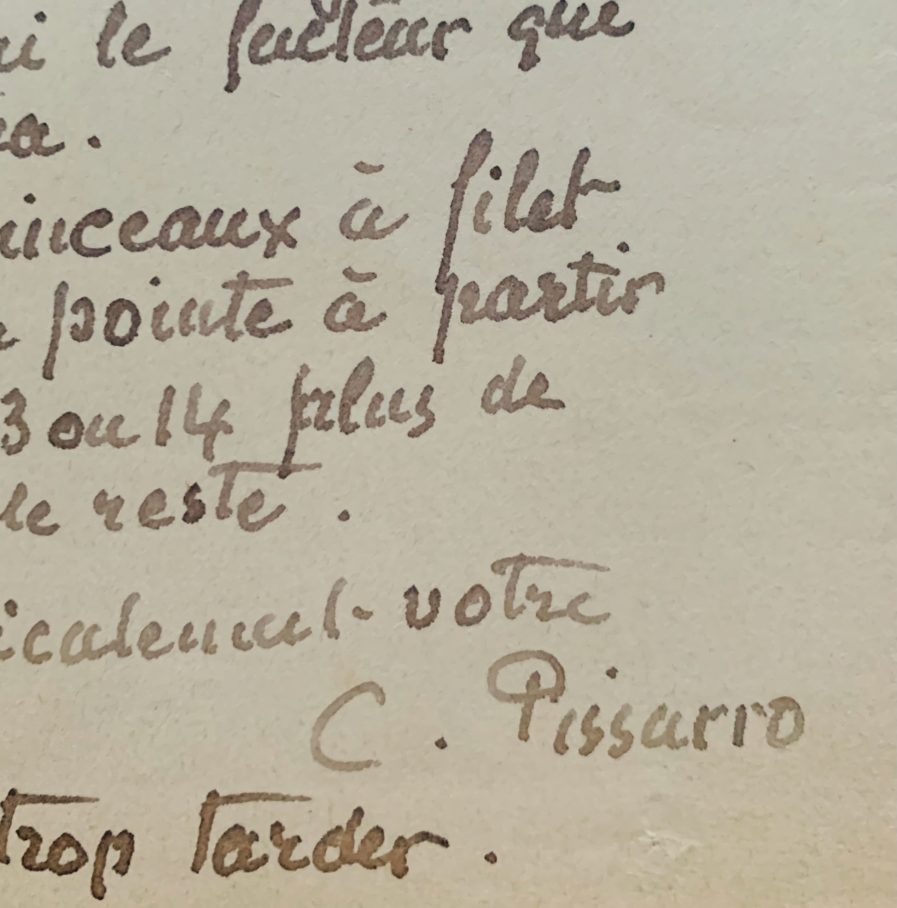 le facteur que
à filet
pointe à partir
3 ou 14 plus de
le reste.
votre
C. Pissarro
trop tarder.